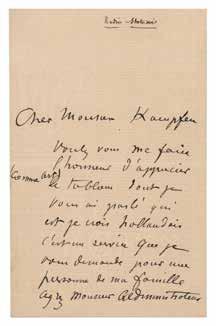 Cher Monsieur Kaempfen
Voulez vous me faire
l'honneur d'apprécier
le tableau dont je
vous ai parlé qui
est je crois hollandais
c'est un service que je
vous demande pour une
personne de ma famille
agréez Monsieur l'administrateur